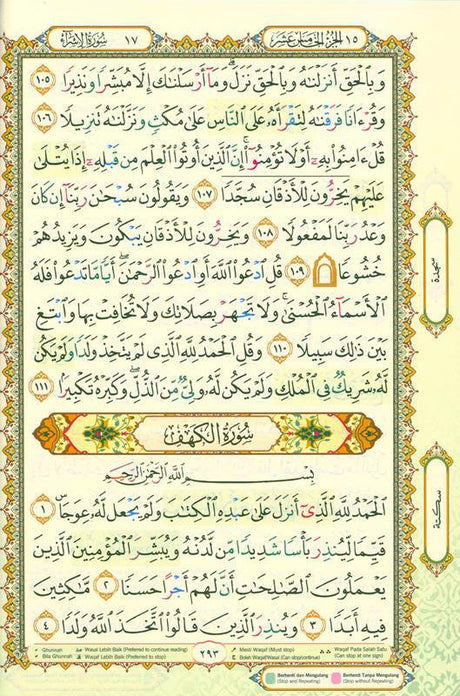 ١٥ الجزء الخامس عشر
١٧ سورة الإسراء
وَبِالْحَقِّ أَنزَلْنَٰهُ وَبِالْحَقِّ نَزَلَ ۗ وَمَآ أَرْسَلْنَٰكَ إِلَّا مُبَشِّرًا وَنَذِيرًا ١٠٥
وَقُرْءَانًا فَرَقْنَٰهُ لِتَقْرَأَهُۥ عَلَى النَّاسِ عَلَىٰ مُكْثٍ وَنَزَّلْنَٰهُ تَنزِيلًا ١٠٦
قُلْ ءَامِنُوا۟ بِهِۦٓ أَوْ لَا تُؤْمِنُوٓا۟ ۚ إِنَّ الَّذِينَ أُوتُوا۟ الْعِلْمَ مِن قَبْلِهِۦٓ إِذَا يُتْلَىٰ
عَلَيْهِمْ يَخِرُّونَ لِلْأَذْقَانِ سُجَّدًا ١٠٧ وَيَقُولُونَ سُبْحَٰنَ رَبِّنَآ إِن كَانَ
وَعْدُ رَبِّنَا لَمَفْعُولًا ١٠٨ وَيَخِرُّونَ لِلْأَذْقَانِ يَبْكُونَ وَيَزِيدُهُمْ
خُشُوعًا ۩ ١٠٩ قُلِ ادْعُوا۟ اللَّهَ أَوِ ادْعُوا۟ الرَّحْمَٰنَ ۖ أَيًّا مَّا تَدْعُوا۟ فَلَهُ
الْأَسْمَآءُ الْحُسْنَىٰ ۚ وَلَا تَجْهَرْ بِصَلَاتِكَ وَلَا تُخَافِتْ بِهَا وَابْتَغِ
بَيْنَ ذَٰلِكَ سَبِيلًا ١١٠ وَقُلِ الْحَمْدُ لِلَّهِ الَّذِى لَمْ يَتَّخِذْ وَلَدًا وَلَمْ يَكُن
لَّهُۥ شَرِيكٌ فِى الْمُلْكِ وَلَمْ يَكُن لَّهُۥ وَلِىٌّ مِّنَ الذُّلِّ ۖ وَكَبِّرْهُ تَكْبِيرًا ١١١
سورة الكهف
بِسْمِ اللَّهِ الرَّحْمَٰنِ الرَّحِيمِ
الْحَمْدُ لِلَّهِ الَّذِىٓ أَنزَلَ عَلَىٰ عَبْدِهِ الْكِتَٰبَ وَلَمْ يَجْعَل لَّهُۥ عِوَجَا ۜ ١
قَيِّمًا لِّيُنذِرَ بَأْسًا شَدِيدًا مِّن لَّدُنْهُ وَيُبَشِّرَ الْمُؤْمِنِينَ الَّذِينَ
يَعْمَلُونَ الصَّٰلِحَٰتِ أَنَّ لَهُمْ أَجْرًا حَسَنًا ٢ مَّٰكِثِينَ
فِيهِ أَبَدًا ٣ وَيُنذِرَ الَّذِينَ قَالُوا۟ اتَّخَذَ اللَّهُ وَلَدًا ٤
سجدة
سكتة
Ghunnah
Bila Ghunnah
Wasal Lebih Baik (Preferred to continue reading)
Waqaf Lebih Baik (Preferred to stop)
٢٩٣
Mesti Waqaf (Must stop)
Boleh Waqaf/Wasal (Can stop/continue)
Waqaf Pada Salah Satu
(Can stop at one side)
Berhenti dan Mengulang
(Stop and Repeating)
Berhenti Tanpa Mengulang
(Stop without Repeating)